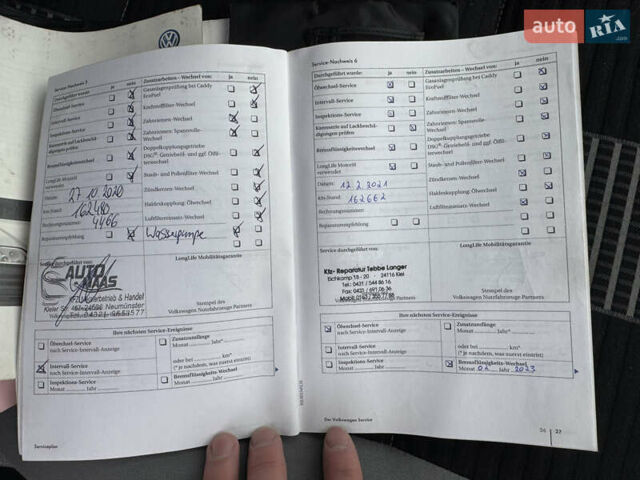 auto RIA .com
Service-Nachweis 5
Durchgeführt wurde: ja nein
Ölwechsel-Service
Intervall-Service
Inspektions-Service
Karosserie auf Lackbeschä-
digungen prüfen
Bremsflüssigkeitswechsel
LongLife Motoröl
verwendet
Datum: 27 10 2020
Km-Stand: 162480
Rechnungsnummer: 4466
Reparaturempfehlung
Zusatzarbeiten - Wechsel von: ja nein
Gasanlagenprüfung bei Caddy
EcoFuel
Kraftstofffilter-Wechsel
Zahnriemen-Wechsel
Zahnriemen- Spannrolle-
Wechsel
Doppelkupplungsgetriebe
DSG®- Getriebeöl- und ggf. Ölfil-
terwechsel
Staub- und Pollenfilter-Wechsel
Zündkerzen-Wechsel
Haldexkupplung: Ölwechsel
Luftfiltereinsatz-Wechsel
Wasserpumpe
Service durchgeführt von:
AUTO
MAAS
Kfz-Meisterbetrieb & Handel
Kieler Str. 467 · 24536 Neumünster
LongLife Mobilitätsgarantie
Stempel des
Volkswagen Nutzfahrzeuge Partners
Ihre nächsten Service-Ereignisse
Ölwechsel-Service
nach Service-Intervall-Anzeige
Intervall-Service
nach Service-Intervall-Anzeige
Inspektions-Service
Monat Jahr
Zusatzumfänge
Monat Jahr*
oder bei km*
(* je nachdem, was zuerst eintritt)
Bremsflüssigkeits-Wechsel
Monat Jahr
Serviceplan
Service-Nachweis 6
Durchgeführt wurde: ja nein
Ölwechsel-Service
Intervall-Service
Inspektions-Service
Karosserie auf Lackbeschä-
digungen prüfen
Bremsflüssigkeitswechsel
LongLife Motoröl
verwendet
Datum: 12.2.2021
Km-Stand: 162662
Rechnungsnummer:
Reparaturempfehlung
Zusatzarbeiten - Wechsel von: ja nein
Gasanlagenprüfung bei Caddy
EcoFuel
Kraftstofffilter-Wechsel
Zahnriemen-Wechsel
Zahnriemen- Spannrolle-
Wechsel
Doppelkupplungsgetriebe
DSG®- Getriebeöl- und ggf. Ölfil-
terwechsel
Staub- und Pollenfilter-Wechsel
Zündkerzen-Wechsel
Haldexkupplung: Ölwechsel
Luftfiltereinsatz-Wechsel
Service durchgeführt von:
Kfz- Reparatur Tebbe Langer
Eichkamp 18 - 20 - 24116 Kiel
Tel.: 0431 / 544 86 16
Fax: 0431 / 691 06 36
LongLife Mobilitätsgarantie
Stempel des
Volkswagen Nutzfahrzeuge Partners
Ihre nächsten Service-Ereignisse
Ölwechsel-Service
nach Service-Intervall-Anzeige
Intervall-Service
nach Service-Intervall-Anzeige
Inspektions-Service
Monat Jahr
Zusatzumfänge
Monat Jahr*
oder bei km*
(* je nachdem, was zuerst eintritt)
Bremsflüssigkeits-Wechsel
Monat 02 Jahr 2023
Der Volkswagen Service
26 27